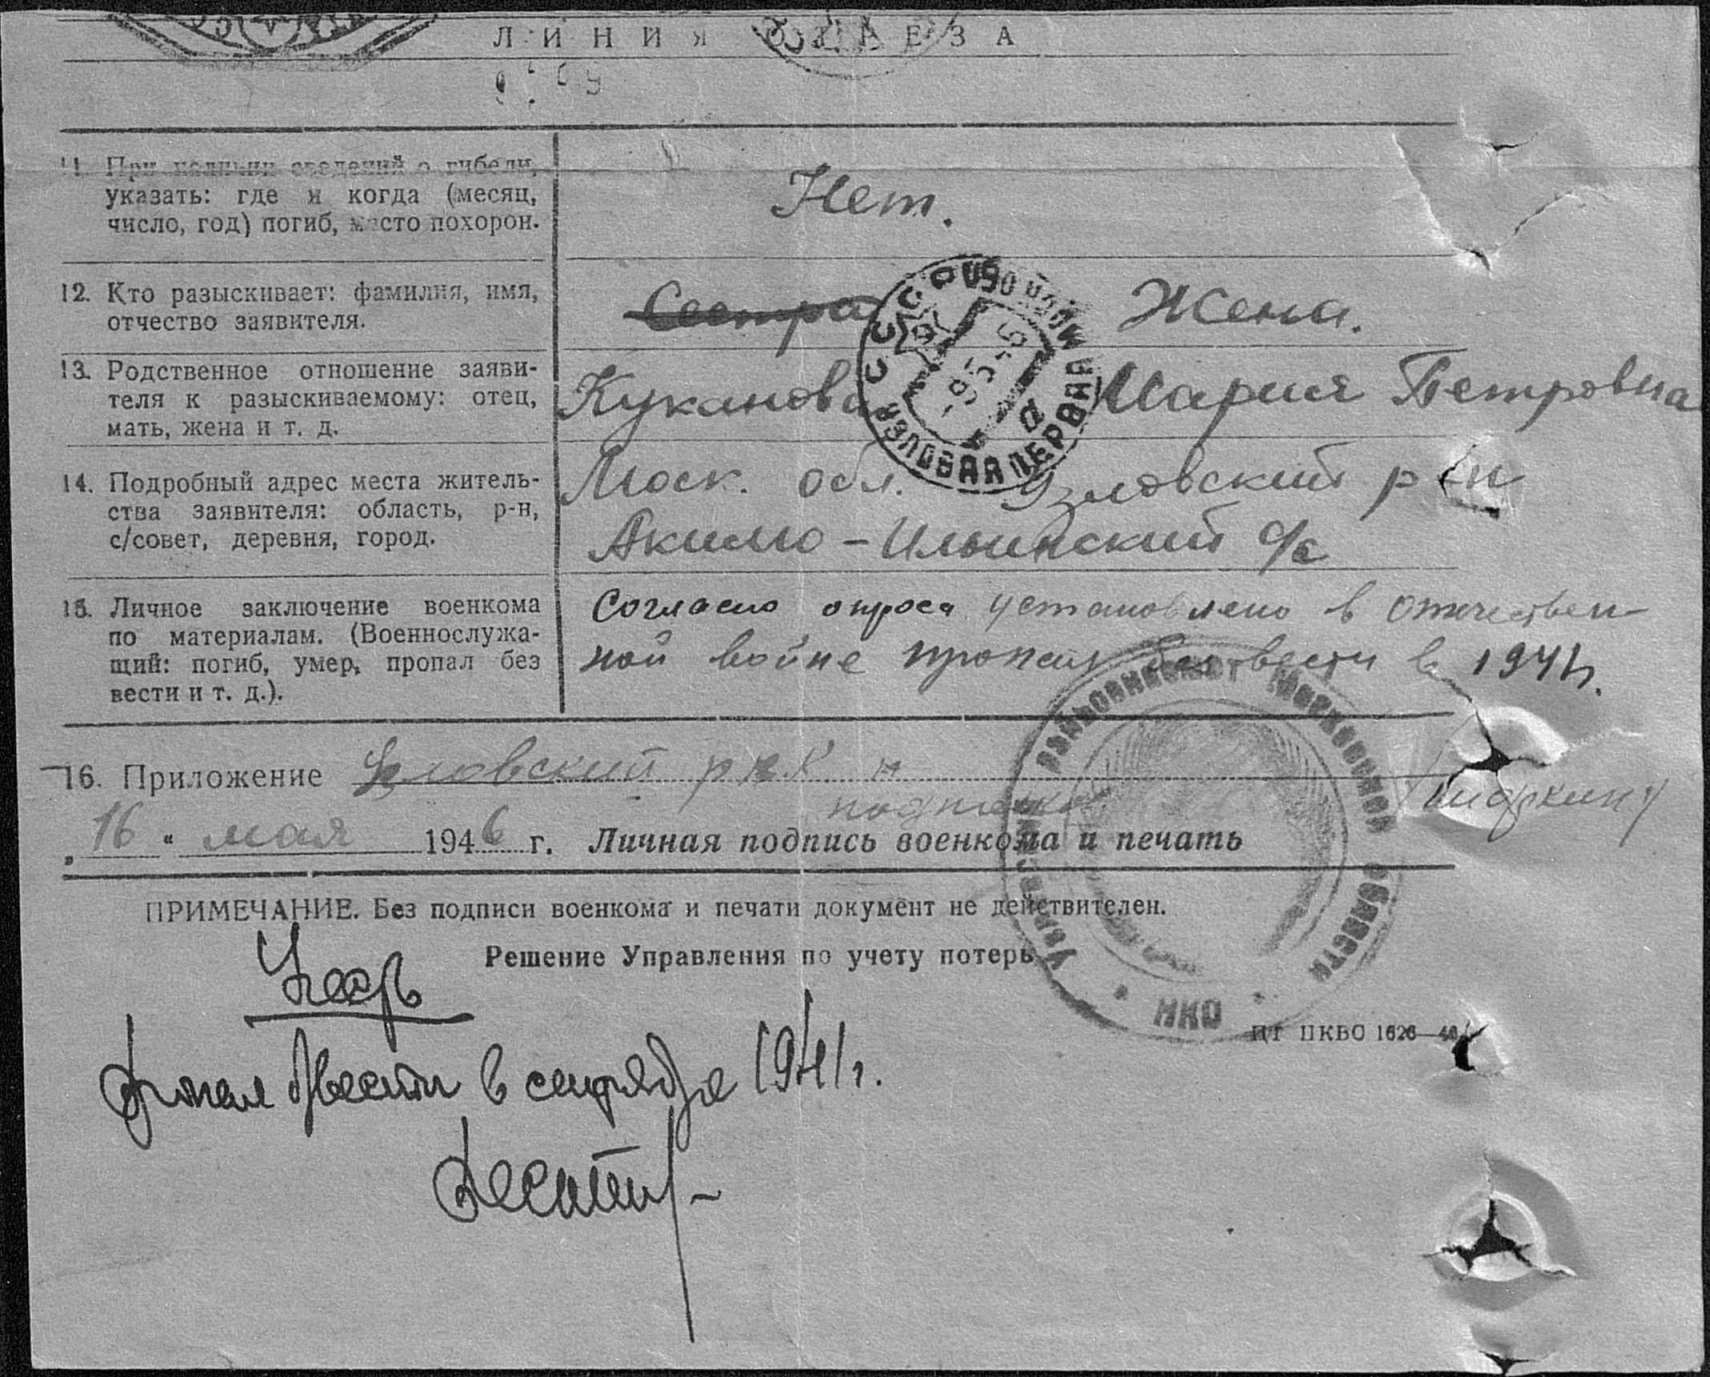 ЛИНИЯ ОТРЕЗА
11. При наличии сведений о гибели,
указать: где и когда (месяц,
число, год) погиб, место похорон.
Нет.
12. Кто разыскивает: фамилия, имя,
отчество заявителя.
Сестра Жена.
13. Родственное отношение заяви-
теля к разыскиваемому: отец,
мать, жена и т. д.
Куканова Мария Петровна
14. Подробный адрес места житель-
ства заявителя: область, р-н,
с/совет, деревня, город.
Моск. обл. Узловский р-н
Акимо-Ильинский с/с
15. Личное заключение военкома
по материалам. (Военнослужа-
щий: погиб, умер, пропал без
вести и т. д.).
Согласно опроса установлено в отечествен-
ной войне пропал без вести в 1941г.
16. Приложение Узловский рвк
"16" мая 1946 г. Личная подпись военкома и печать
ПРИМЕЧАНИЕ. Без подписи военкома и печати документ не действителен.
Решение Управления по учету потерь
пропал б/вести в сентябре 1941г.
ЦТ ПКВО 1626—46
СССР
УЗЛОВАЯ ПЕРВАЯ
райвоенкомат Московской области
НКО